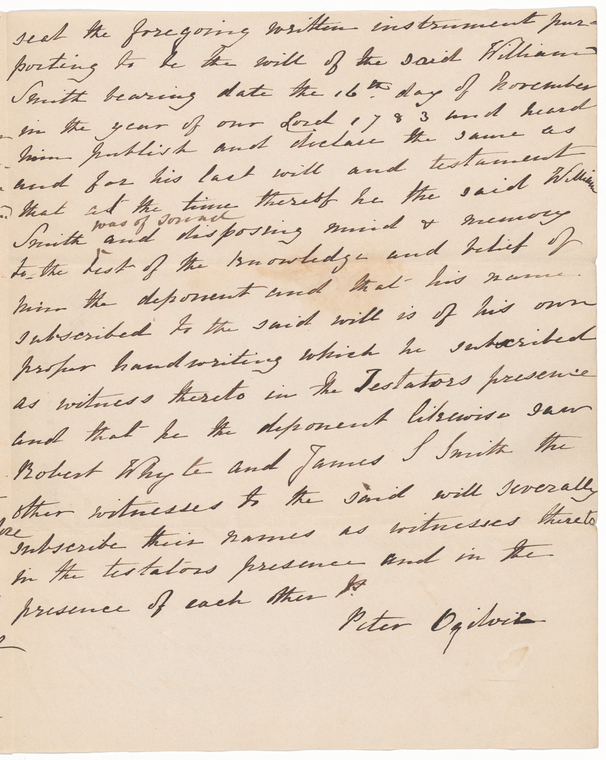 seal the foregoing written instrument pur=
porting to be the will of the said William
Smith bearing date the 16th day of November
in the year of our Lord 1783 and heard
him publish and declare the same as
and for his last will and testament
that at the time thereof he the said William
was of sound
Smith and disposing mind & memory
to the best of the knowledge and belief of
him the deponent and that his name
subscribed to the said will is of his own
proper handwriting which he subscribed
as witness thereto in the Testators presence
and that he the deponent likewise saw
Robert Whyte and James S Smith the
other witnesses to the said will severally
subscribe their names as witnesses thereto
in the testators presence and in the
presence of each other
Peter Ogilvie